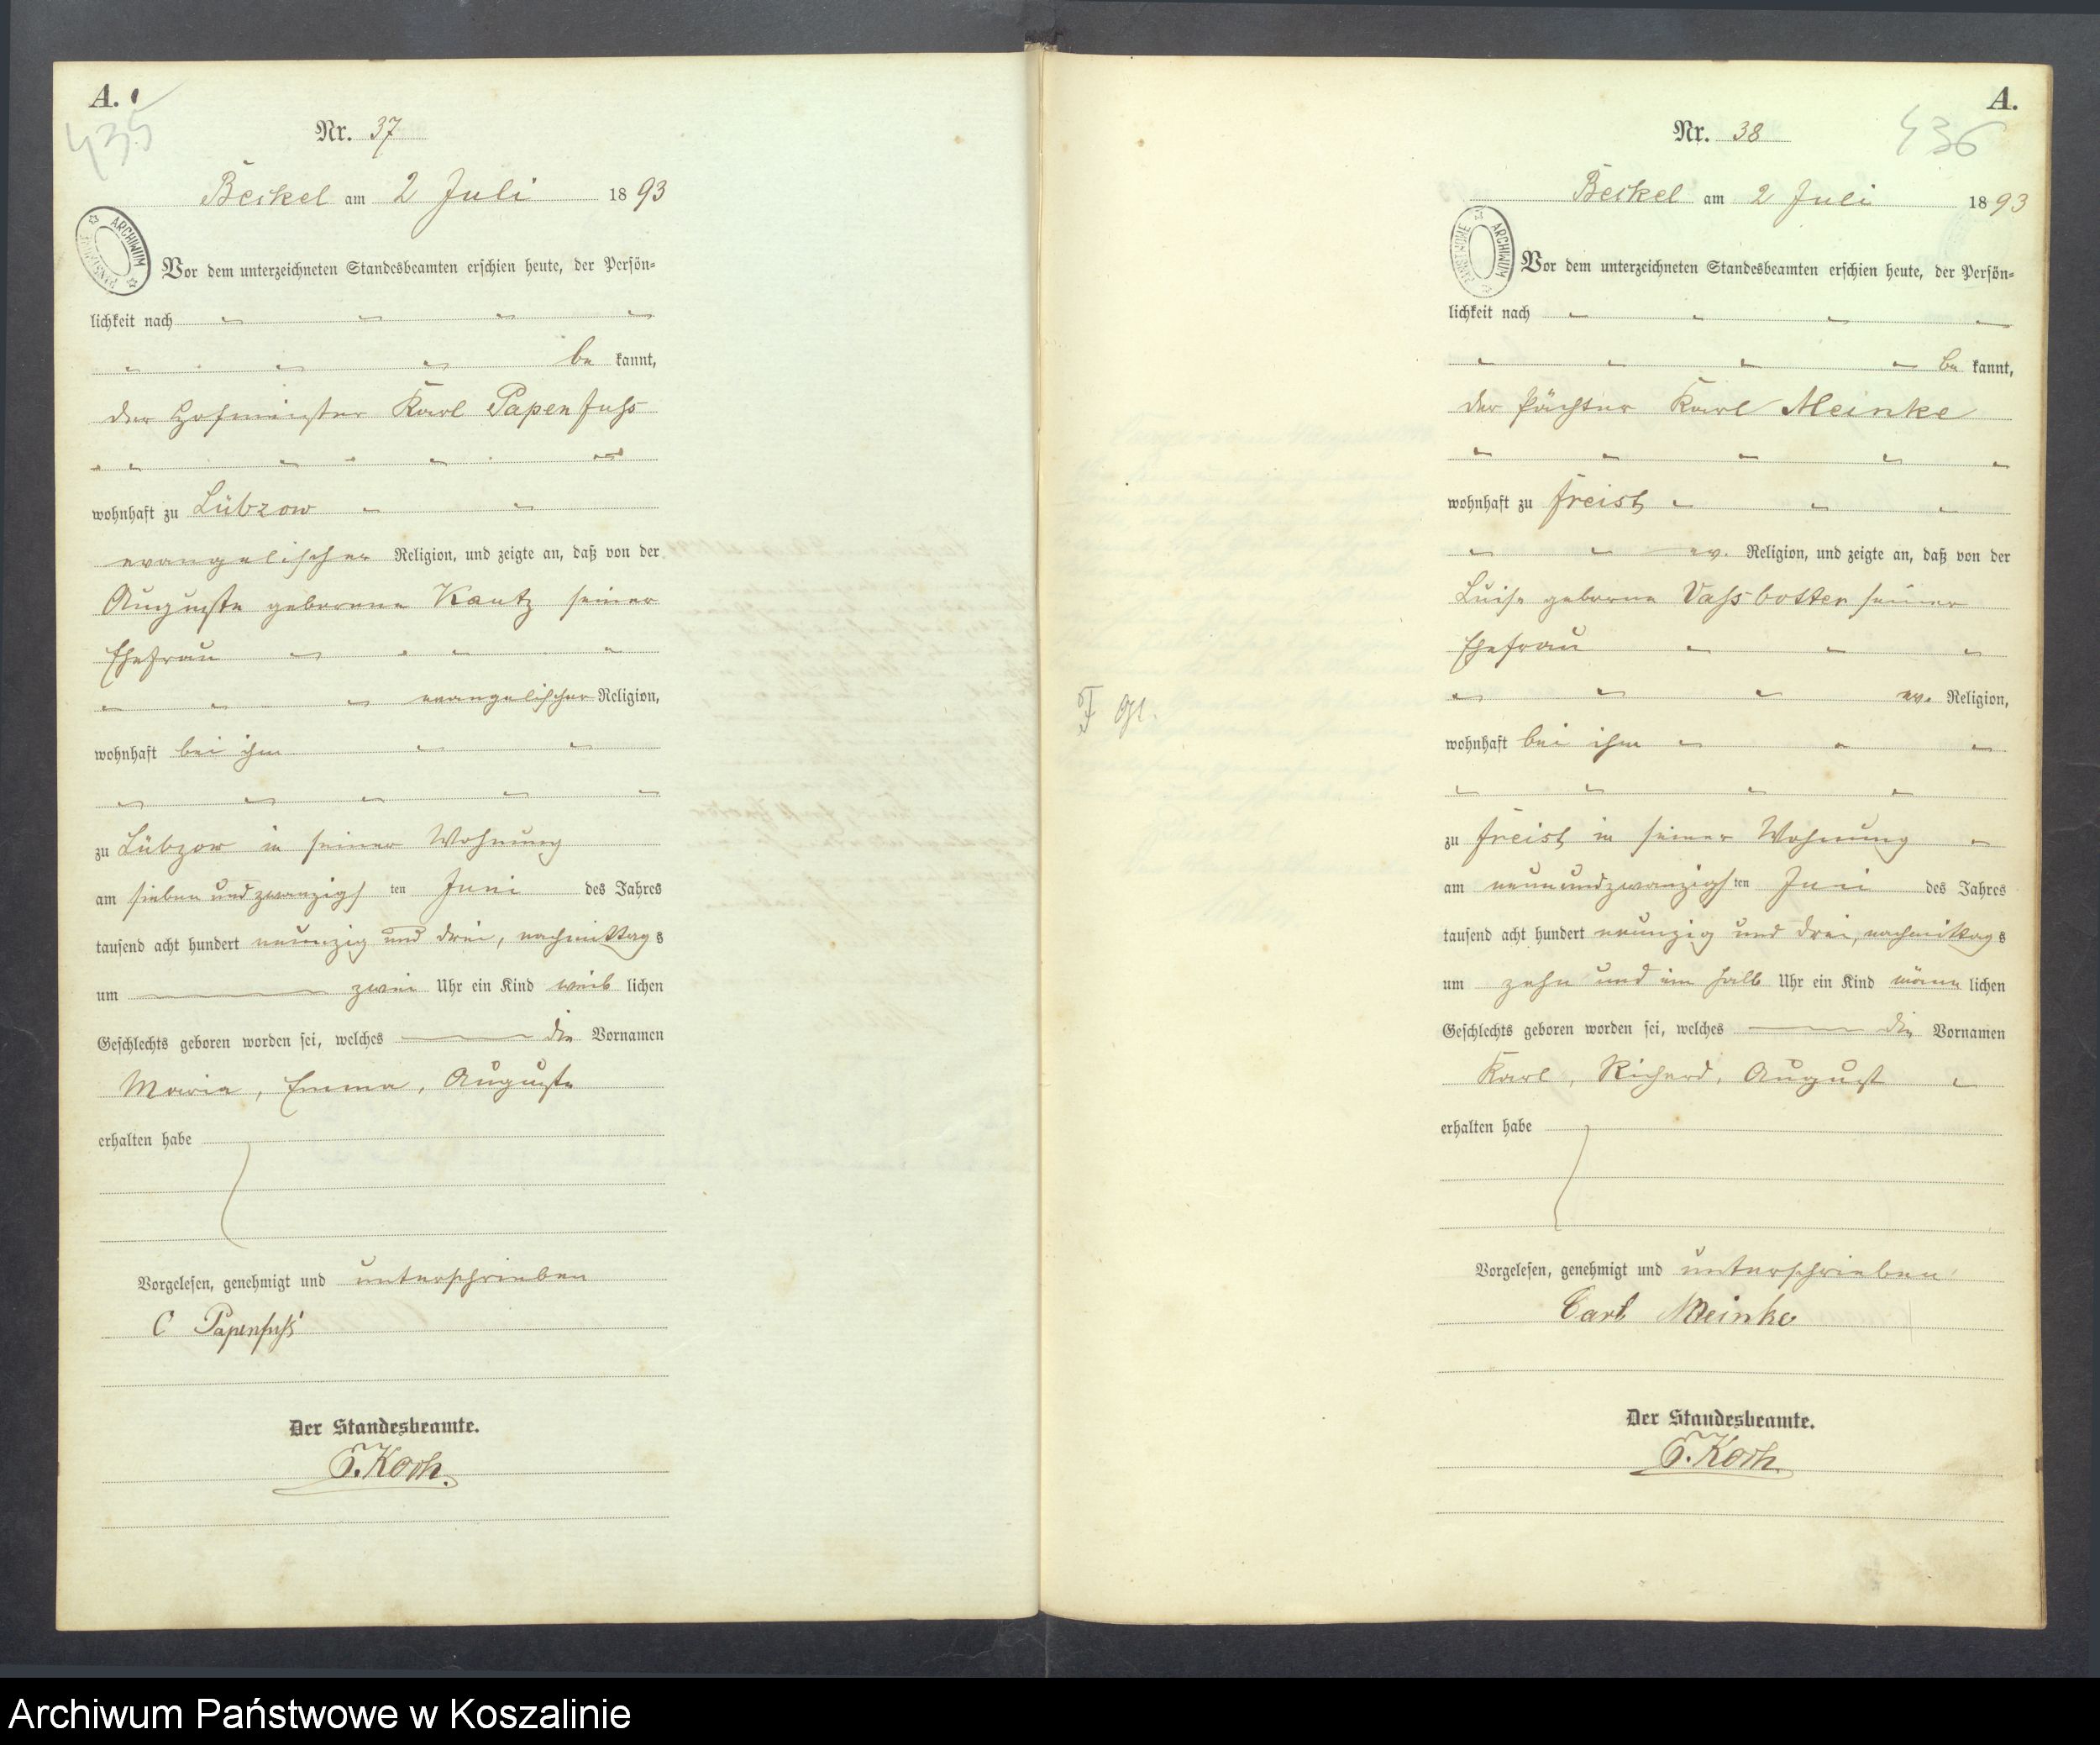 A.
435
Nr. 37
Beckel am 2 Juli 1893
ARCHIWUM PAŃSTWOWE
Vor dem unterzeichneten Standesbeamten erschien heute, der Persön-
lichkeit nach
be kannt,
der Hofmeister Karl Papenfuss
wohnhaft zu Lübzow
evangelischer Religion, und zeigte an, daß von der
Auguste geborene Kautz seiner
Ehefrau
evangelischer Religion,
wohnhaft bei ihm
zu Lübzow in seiner Wohnung
am sieben und zwanzigs ten Juni des Jahres
tausend acht hundert neunzig und drei, nachmittags
um zwei Uhr ein Kind weib lichen
Geschlechts geboren worden sei, welches die Vornamen
Maria, Emma, Auguste
erhalten habe
Vorgelesen, genehmigt und unterschrieben
C Papenfuß
Der Standesbeamte.
Koch.
A.
436
Nr. 38
Beckel am 2 Juli 1893
ARCHIWUM PAŃSTWOWE
Vor dem unterzeichneten Standesbeamten erschien heute, der Persön-
lichkeit nach
be kannt,
der Pächter Karl Meinke
wohnhaft zu Freist
ev. Religion, und zeigte an, daß von der
Luise geborne seiner
Ehefrau
ev. Religion,
wohnhaft bei ihm
zu Freist in seiner Wohnung
am neunundzwanzigs ten Juni des Jahres
tausend acht hundert neunzig und drei, nachmittags
um zehn und ein halb Uhr ein Kind männ lichen
Geschlechts geboren worden sei, welches die Vornamen
Karl, Richard, August
erhalten habe
Vorgelesen, genehmigt und unterschrieben
Carl Meinke
Der Standesbeamte.
Koch.
Archiwum Państwowe w Koszalinie